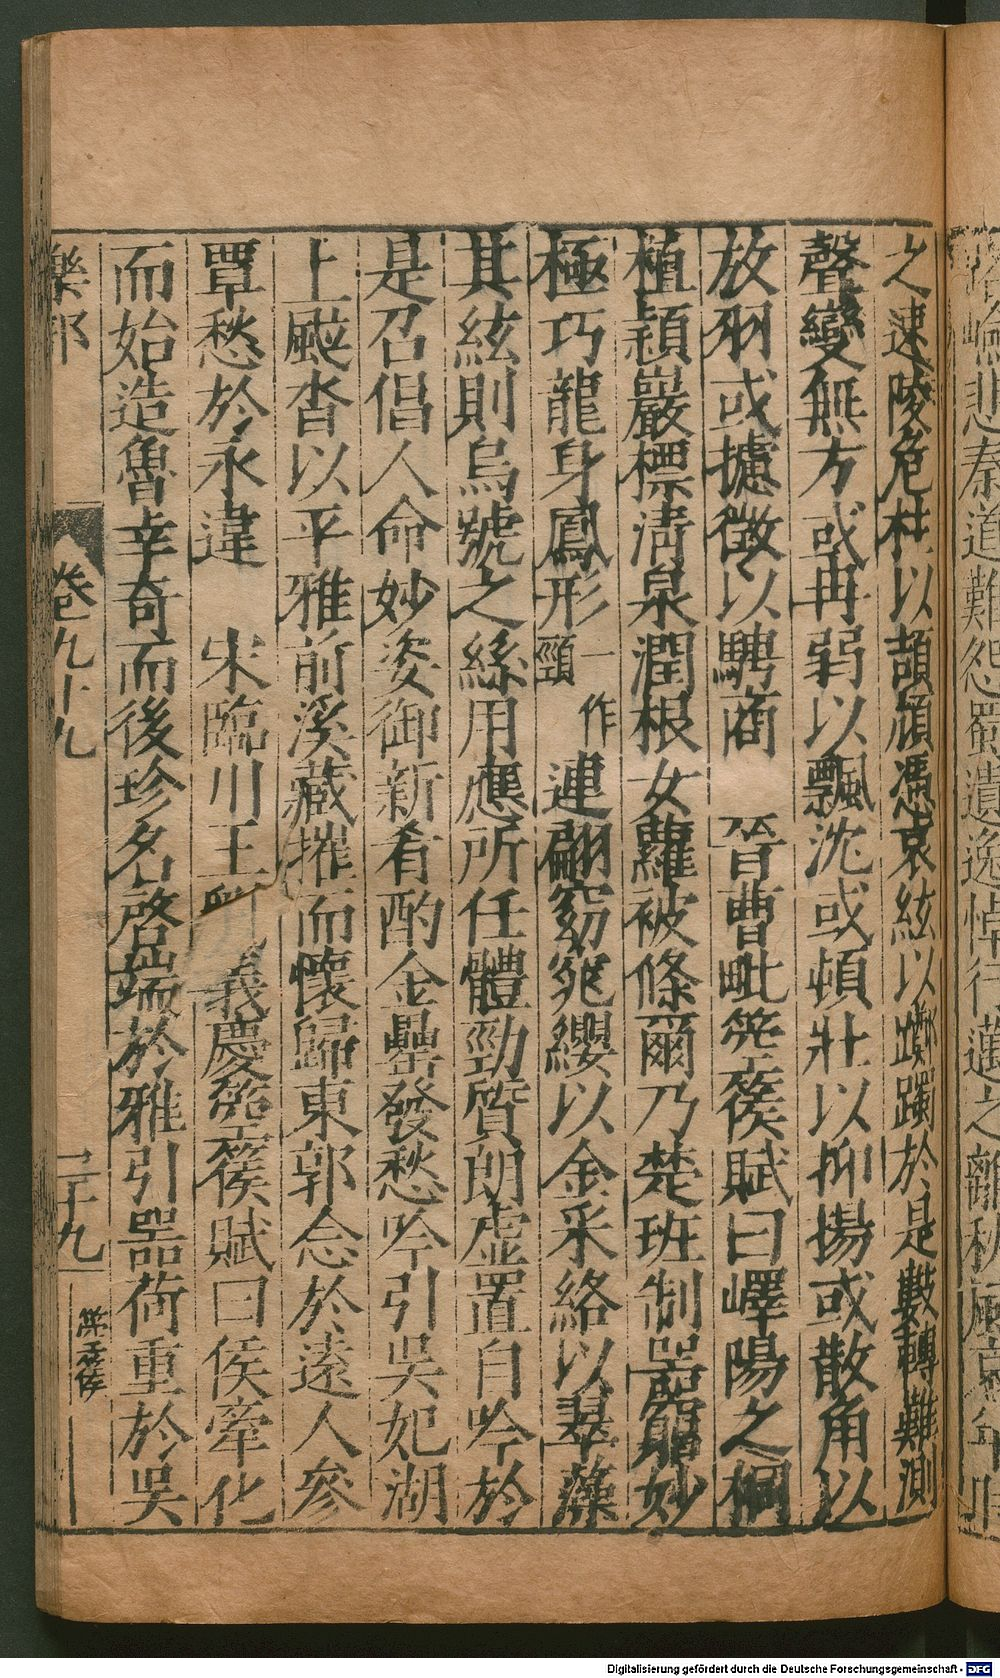 之速陵危柱以頡頏憑哀絃以躑躅於是數轉難測
聲變無方或冉弱以飄沈或頓壯以抑揚或散角以
放羽或攄徵以騁商　晉曹毗箜篌賦曰嶧陽之桐
植穎巖標清泉潤根女蘿被條爾乃楚班制器窮妙
極巧龍身鳳形一作頸連翩窈窕纓以金采絡以翠藻
其絃則烏號之絲用應所任體勁質朗虛置自吟於
是召倡人命妙姿御新肴酌金罍發愁吟引吳妃湖
上颰沓以平雅前溪藏摧而懷歸東郭念於遠人參
覃愁於永違　宋臨川王義慶箜篌賦曰侯牽化
而始造魯幸奇而後珍名啓端於雅引器荷重於吳
樂部　卷九十九　二十九
Digitalisierung gefördert durch die Deutsche Forschungsgemeinschaft - DFG